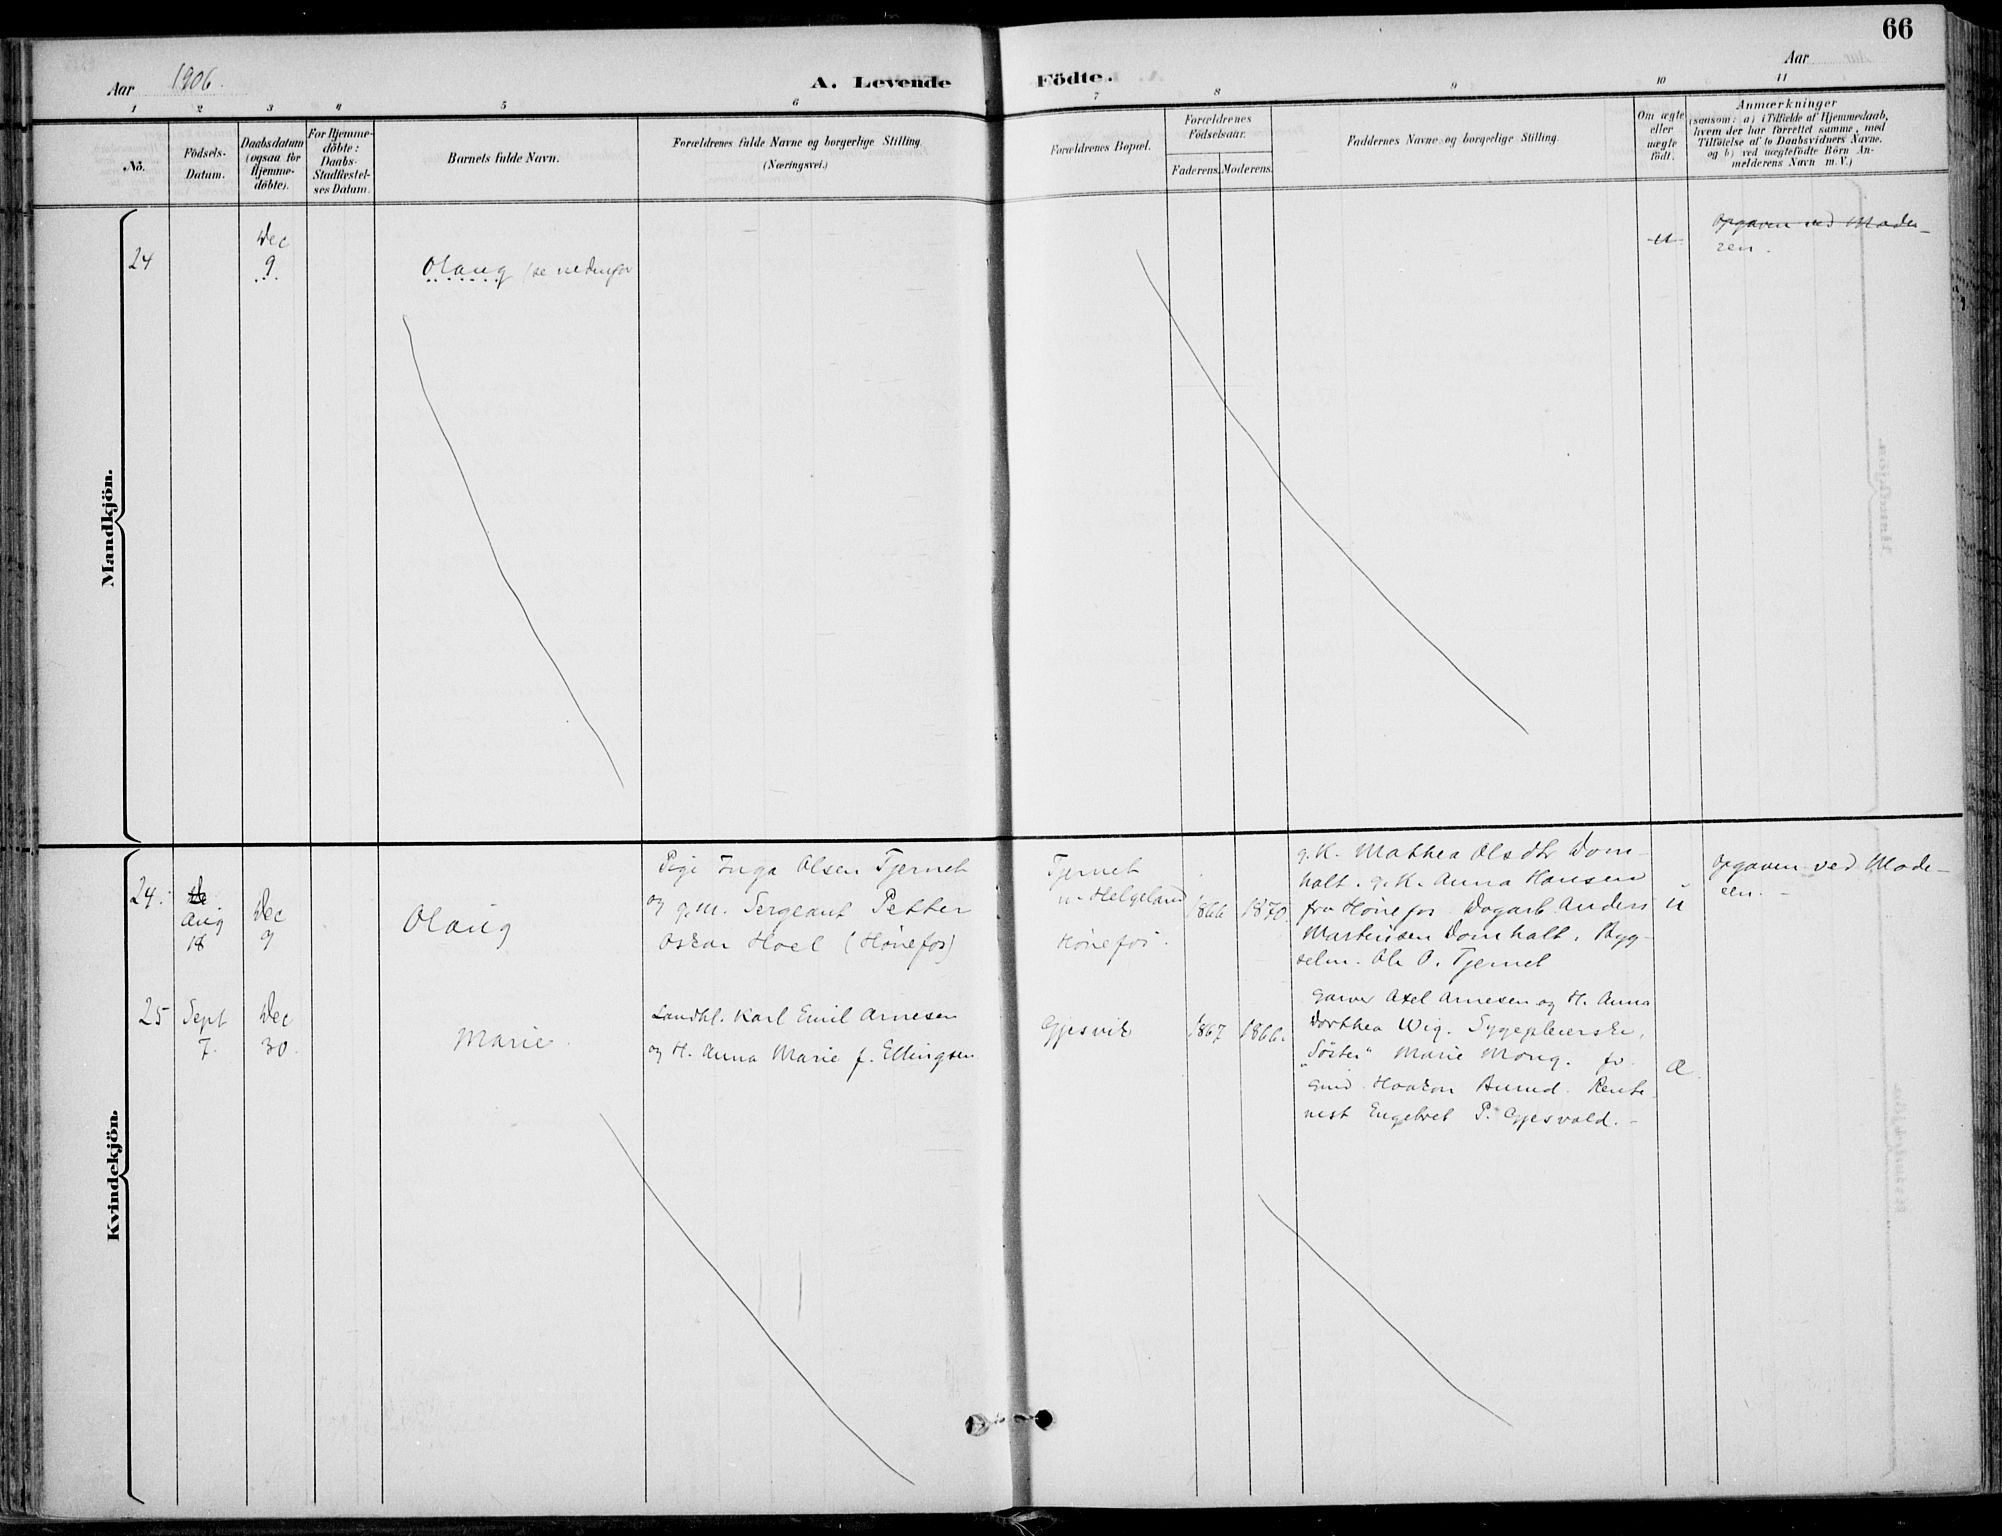 66
Aar 1906.
A. Levende Födte.
Aar
1 2 3 4 5 6 7 8 9 10 11
No.
Födsels-
Datum.
Daabsdatum
(ogsaa for
Hjemme-
döbte).
For Hjemme-
döbte:
Daabs-
Stadfæstel-
ses Datum.
Barnets fulde Navn.
Forældrenes fulde Navne og borgerlige Stilling
(Næringsvei.)
Forældrenes Bopæl.
Forældrenes
Födselsaar.
Faderens. Moderens.
Faddernes Navne og borgerlige Stilling.
Om ægte
eller
uægte
födt.
Anmærkninger
(saasom: a) i Tilfælde af Hjemmedaab,
hvem der har forrettet samme, med
Tilföielse af to Daabsvidners Navne.
og b) ved uægtefödte Börn An-
melderens Navn m. V.)
Mandkjön.
24
Dec
9
Olaug (se nedenfor
u
Opgaven ved Mode-
ren.
Kvindekjön.
24.
De
Aug
18
Dec
9
Olaug
Pige Inga Olsen Tjernet
og g.m. Sergeant Petter
Oskar Hoel (Hønefos)
Tjernet
u. Helgeland
Hønefos.
1866 1870.
g.K. Mathea Olsdtr Dom-
holt. g.K. Anna Hansen
fra Hønefos. Dagarb. Anders
Martinsen Domholt. Byg-
selm. Ole O. Tjernet
u
Opgaven ved Mode-
ren. -
25
Sept
7.
Dec
30.
Marie.
Landhl. Karl Emil Arnesen
og H. Anna Marie f. Ellingsen
Gjesvik
1867 1866.
Garver Axel Arnesen og H. Anna
Dorthea Wig. Sygepleierske,
"Søster" Marie Mong. fv.
Gmd. Haakon Burud. Rente-
nist Engebret P. Gjesvold. -
Æ.